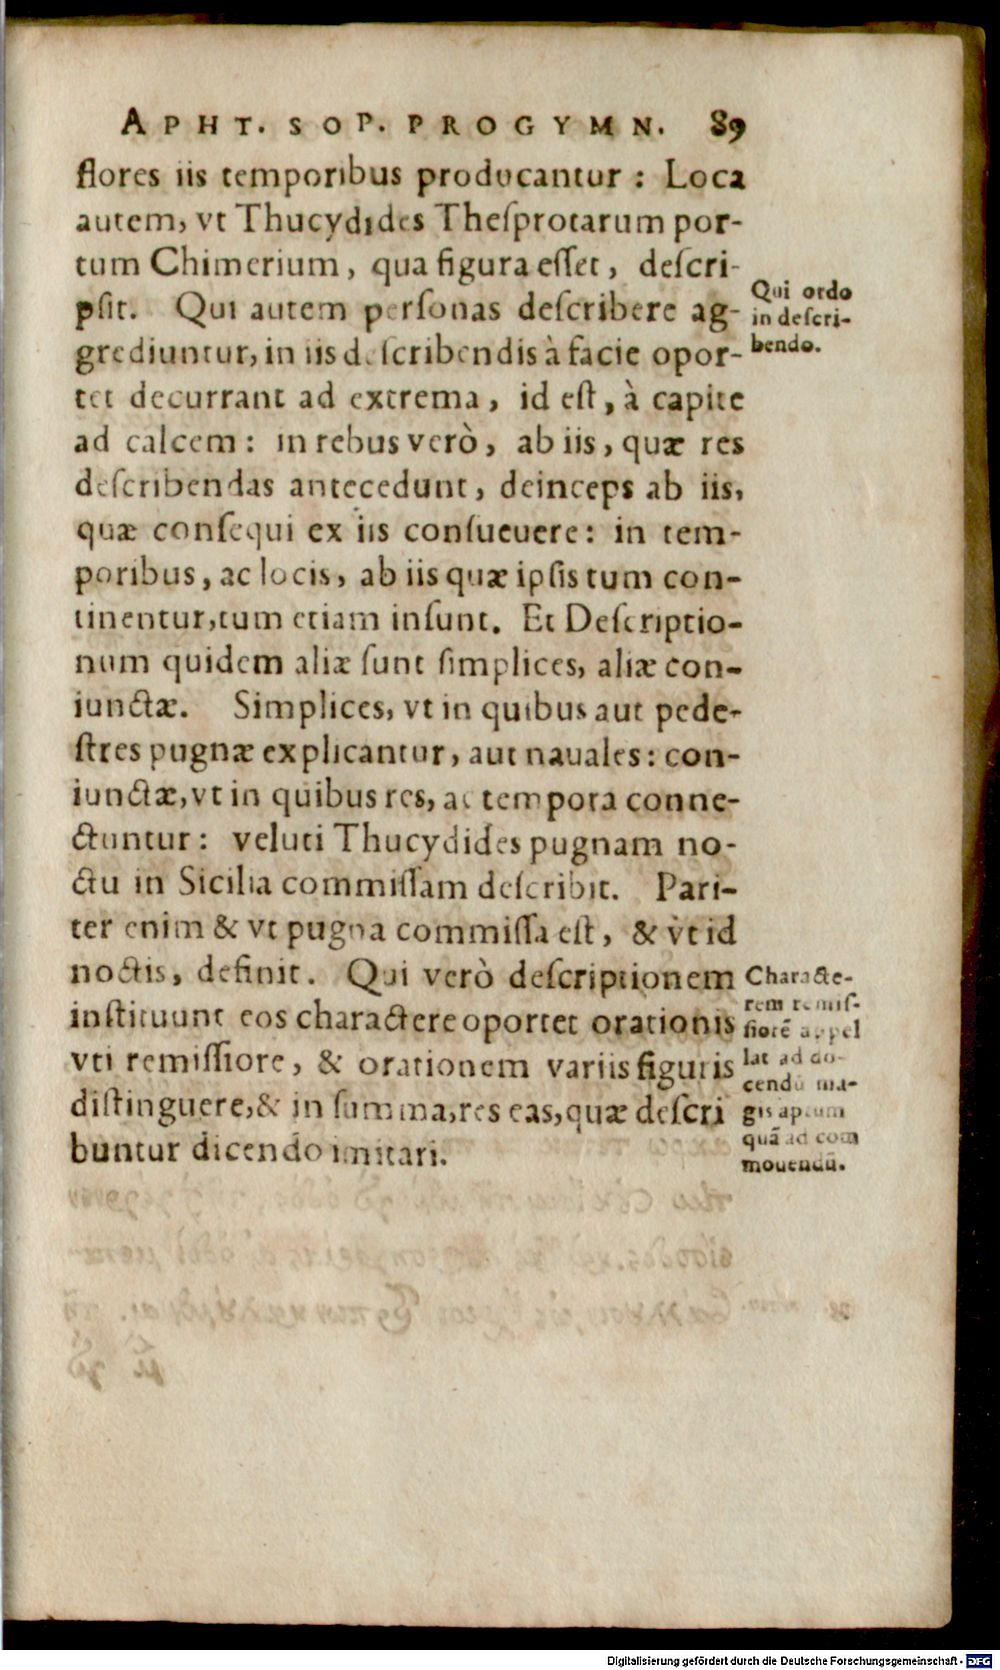 APHT. SOP. PROGYMN. 89
flores iis temporibus producantur : Loca
autem, vt Thucydides Theſprotarum por-
tum Chimerium, qua figura eſſet, deſcri-
pſit. Qui autem perſonas deſcribere ag-
grediuntur, in iis deſcribendis à facie opor-
tet decurrant ad extrema, id eſt, à capite
ad calcem: in rebus verò, ab iis, quæ res
deſcribendas antecedunt, deinceps ab iis,
quæ conſequi ex iis conſueuere: in tem-
poribus, ac locis, ab iis quæ ipſis tum con-
tinentur, tum etiam inſunt. Et Deſcriptio-
num quidem aliæ ſunt ſimplices, aliæ con-
iunctæ. Simplices, vt in quibus aut pede-
ſtres pugnæ explicantur, aut nauales: con-
iunctæ, vt in quibus res, ac tempora conne-
ctuntur: veluti Thucydides pugnam no-
ctu in Sicilia commiſſam deſcribit. Pari-
ter enim & vt pugna commiſſa eſt, & vt id
noctis, definit. Qui verò deſcriptionem
inſtituunt eos charactere oportet orationis
vti remiſſiore, & orationem variis figuris
diſtinguere, & in ſumma, res eas, quæ deſcri
buntur dicendo imitari.
Qui ordo
in deſcri-
bendo.
Characte-
rem remiſ-
ſiorē appel
lat ad do-
cendū ma-
gis aptum
quā ad com
mouendū.
Digitalisierung gefördert durch die Deutsche Forschungsgemeinschaft - DFG